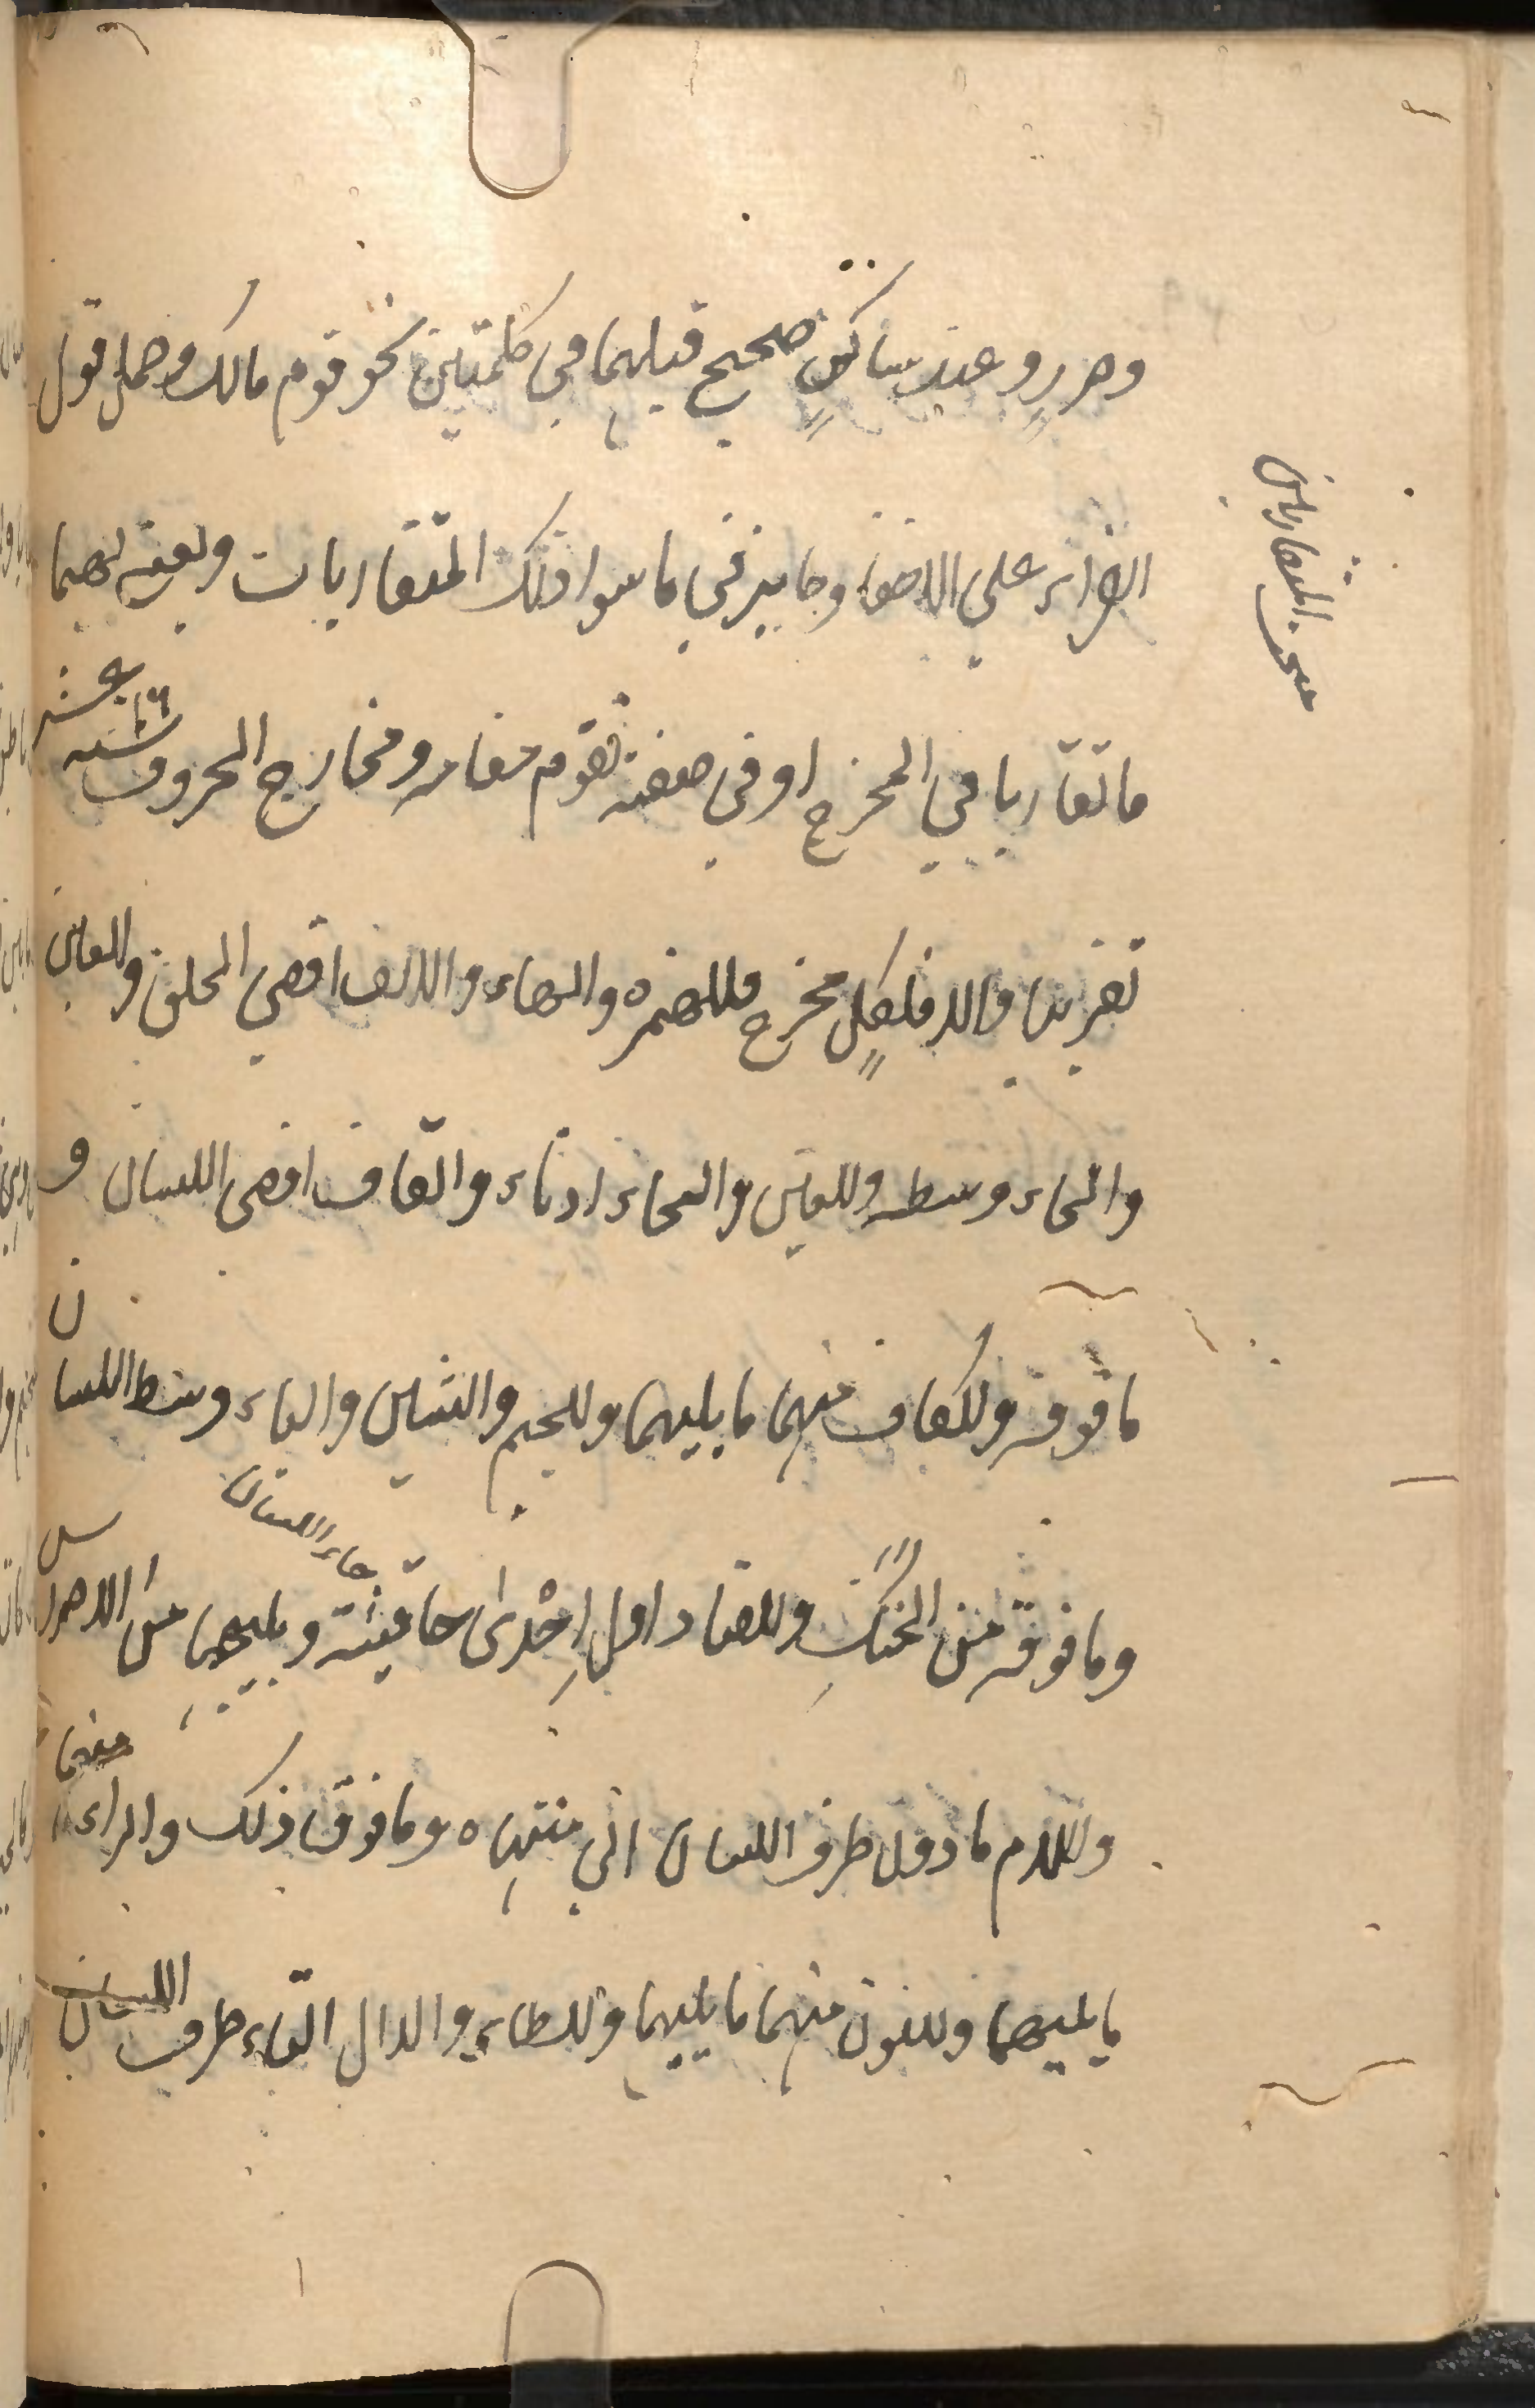 وصررٍ وعند ساكنٍ صحيح قبلهما في كلمتين نحو قوم مالك وحمل قول
القراء علي الاخفاء وجايز في ما سوا ذلك المتقاربات ونعني بهما
ما تقاربا في المخرج او في صفة تقوم مقامه ومخارج الحروف ستة عشر
١٦
تقريبا والا فلكلٍ مخرج فللهمزه والهاء والالف اقصي الحلق وللعين
والحاء وسطه وللغين والخاء ادناه وللقاف اقصى اللسان و
ما فوقه وللكاف منهما ما يليهما وللجيم والشين والياء وسط اللسان
وما فوقه من الحنكِ وللضاد اول اِحْدى حافتيه ويليهما من الاضراس
حافتا اللسان
وللام ما دون طرف اللسان الي منتهاه وما فوق ذلك والراء منهما
ما يليهما وللنون منهما ما يليهما وللطاء والدال التاء طرف اللسان
مبحث المتقاربين